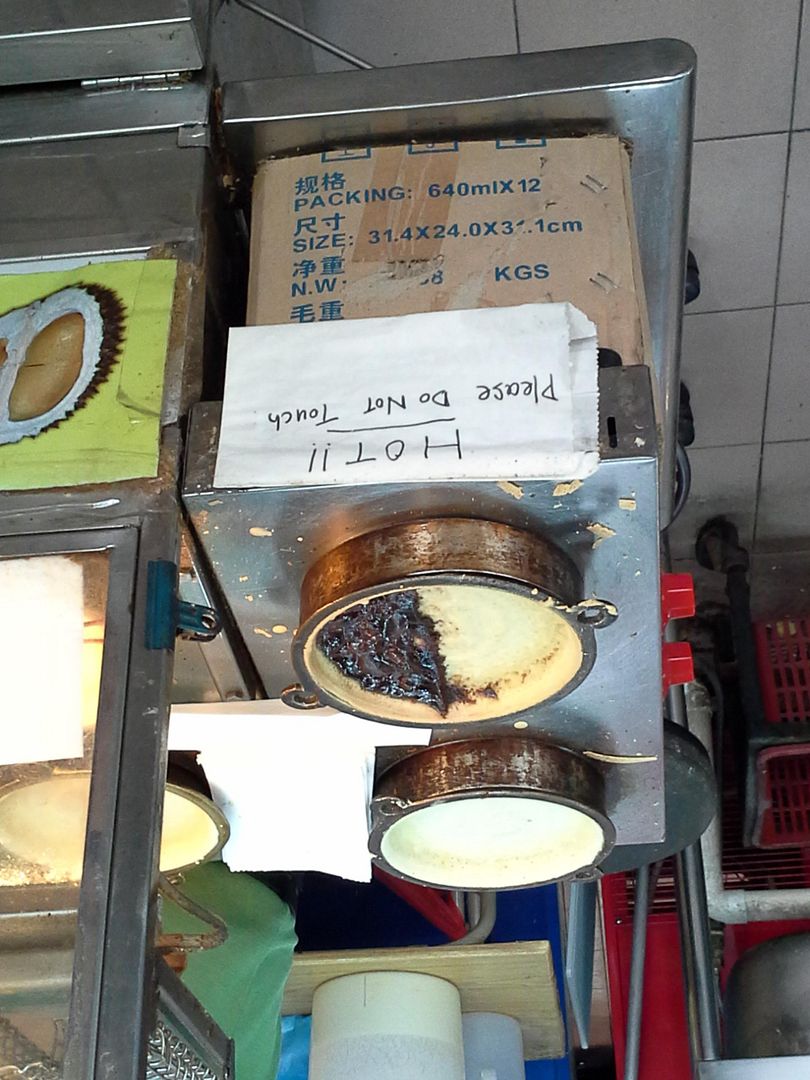 规格
PACKING: 640mlX12
尺寸
SIZE: 31.4X24.0X31.1cm
净重
N.W KGS
毛重
HOT!!
Please Do Not Touch